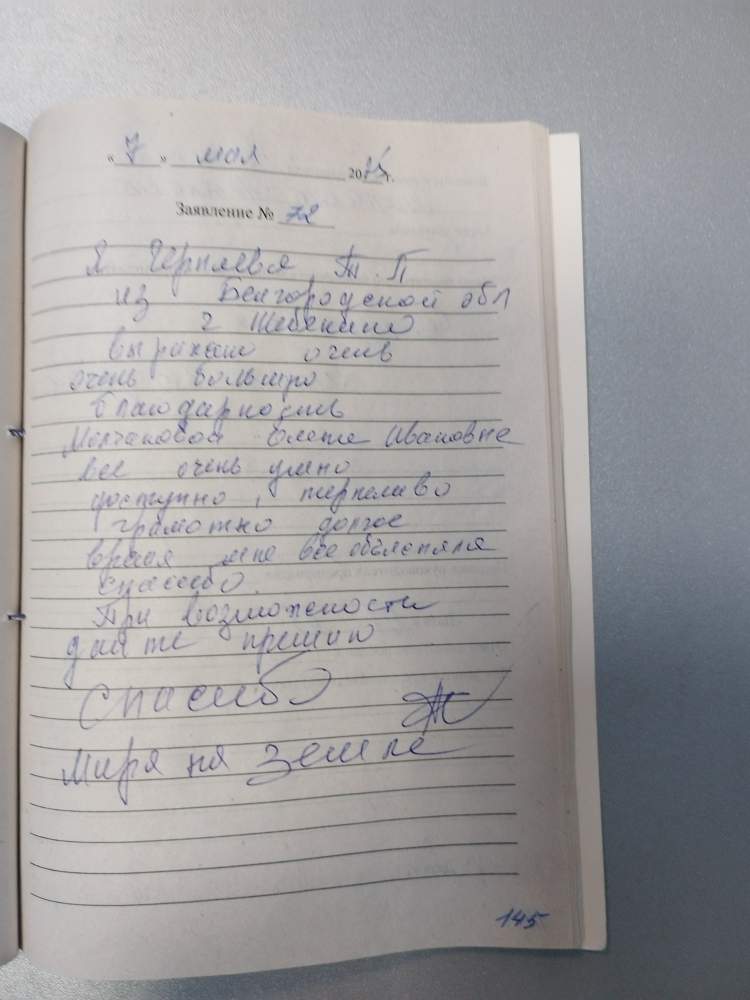 « 7 » мая 2025 г.
Заявление № 72
Я Черняева Т.П
из Белгородской обл
г Шебекино
выражаю очень
очень большую
благодарность
Молчановой Елене Ивановне
все очень умно
доступно, терпеливо
грамотно долгое
время мне все объясняла
спасибо.
При возможности
дайте премию
Спасибо
Мира на Земле
145